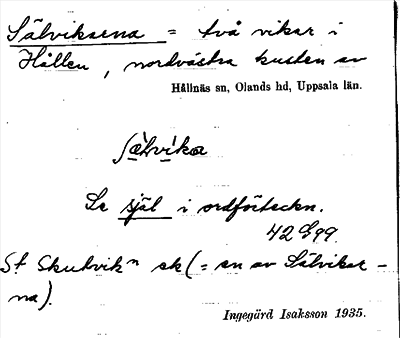 Sälvikarna = två vikar i
Hållen, nordvästra kusten av
Hållnäs sn, Olands hd, Uppsala län.
Se själ i ordförteckn.
42 G 99.
St Skutvikn sk (= en av Sälvikar-
na).
Ingegärd Isaksson 1935.